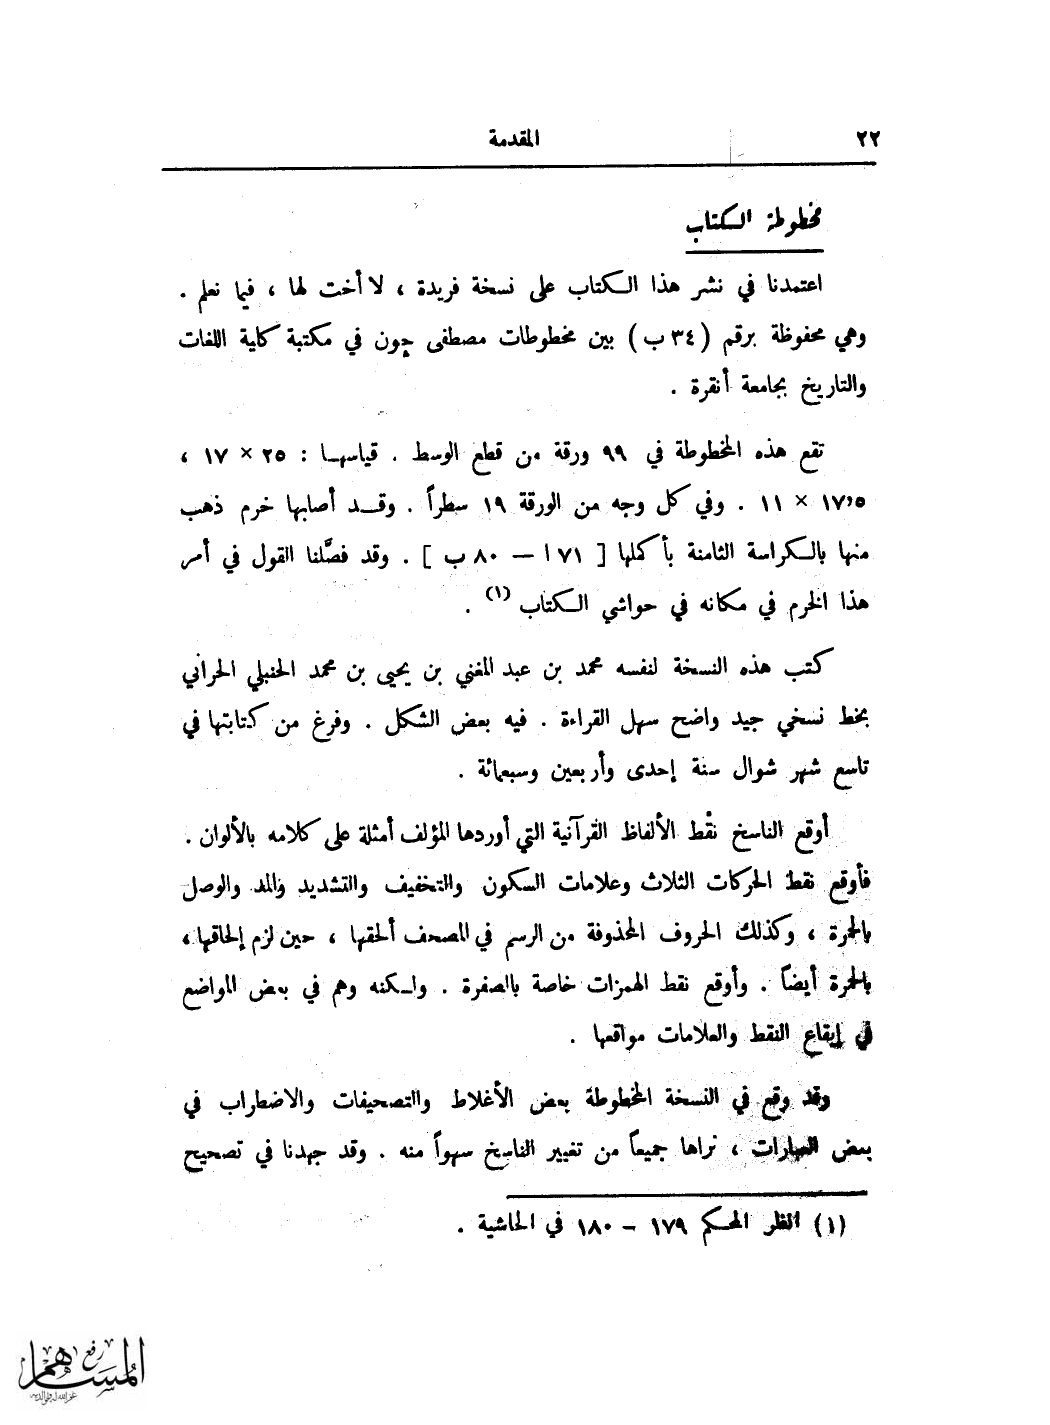 ٢٢ المقدمة
مخطوطة الكتاب
اعتمدنا في نشر هذا الكتاب على نسخة فريدة ، لا أخت لها ، فيما نعلم .
وهي محفوظة برقم ( ٣٤ ب ) بين مخطوطات مصطفى چون في مكتبة كلية اللغات
والتاريخ بجامعة أنقرة .
تقع هذه المخطوطة في ٩٩ ورقة من قطع الوسط . قياسها : ٢٥ × ١٧ ،
١٧٫٥ × ١١ . وفي كل وجه من الورقة ١٩ سطراً . وقد أصابها خرم ذهب
منها بالكراسة الثامنة بأكملها [ ٧١ ا — ٨٠ ب ] . وقد فصَّلنا القول في أمر
هذا الخرم في مكانه في حواشي الكتاب (١) .
كتب هذه النسخة لنفسه محمد بن عبد المغني بن يحيى بن محمد الحنبلي الحراني
بخط نسخي جيد واضح سهل القراءة . فيه بعض الشكل . وفرغ من كتابتها في
تاسع شهر شوال سنة إحدى وأربعين وسبعمائة .
أوقع الناسخ نقْط الألفاظ القرآنية التي أوردها المؤلف أمثلة على كلامه بالألوان .
فأوقع نقط الحركات الثلاث وعلامات السكون والتخفيف والتشديد والمد والوصل
بالحمرة ، وكذلك الحروف المحذوفة من الرسم في المصحف ألحقها ، حين لزم إلحاقها ،
بالحمرة أيضاً . وأوقع نقط الهمزات خاصة بالصفرة . ولكنه وهم في بعض المواضع
في إيقاع النقط والعلامات مواقعها .
وقد وقع في النسخة المخطوطة بعض الأغلاط والتصحيفات والاضطراب في
بعض العبارات ، نراها جميعاً من تغيير الناسخ سهواً منه . وقد جهدنا في تصحيح
(١) انظر المحكم ١٧٩ – ١٨٠ في الحاشية .
رفع
المساهم
غفر الله له ولوالديه